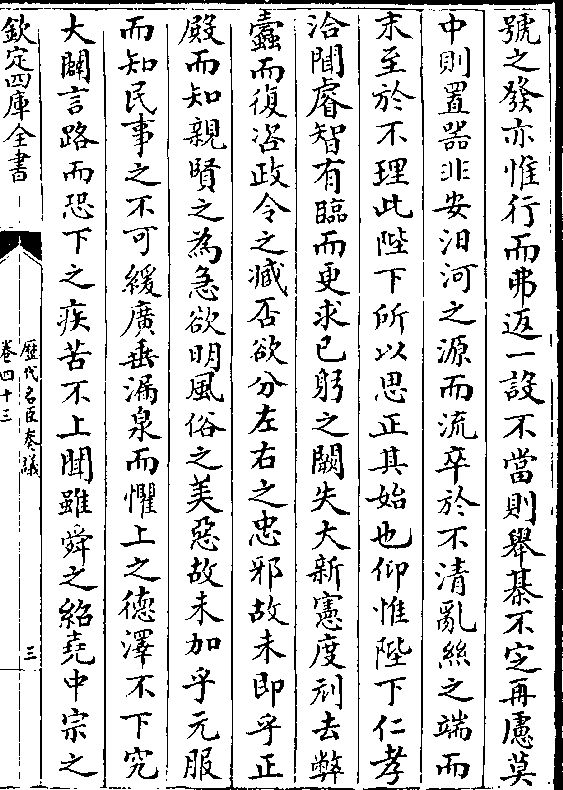 號之發亦惟行而弗返一設不當則舉棊不定再慮莫
中則置器非安汨河之源而流卒於不清亂絲之端而
末至於不理此陛下所以思正其始也仰惟陛下仁孝
洽聞睿智有臨而更求已躬之闕失大新憲度刬去弊
蠹而復咨政令之臧否欲分左右之忠邪故未即乎正
殿而知親賢之為急欲明風俗之美惡故未加乎元服
而知民事之不可緩廣垂漏泉而懼上之德澤不下究
大闢言路而恐下之疾苦不上聞雖舜之紹堯中宗之
欽定四庫全書
歷代名臣奏議
卷四十三
三